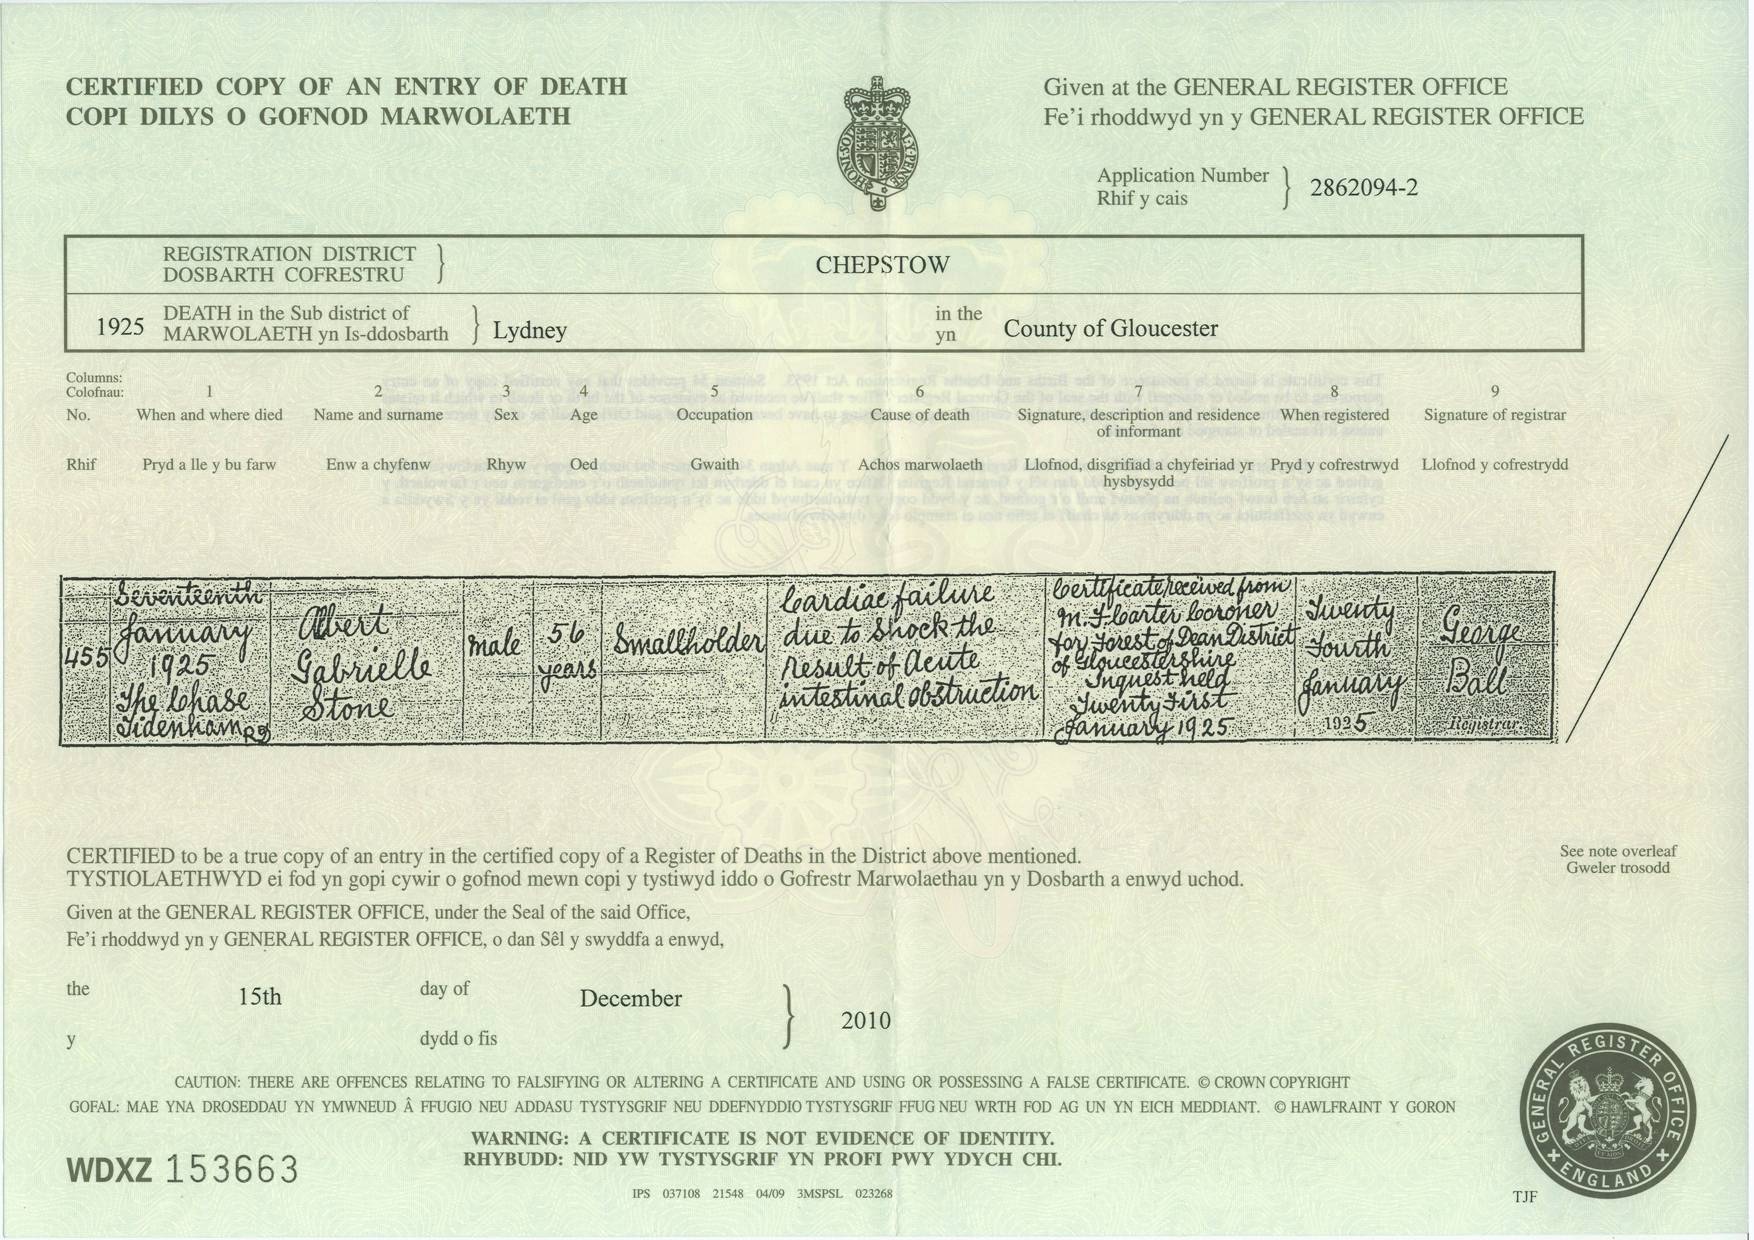 CERTIFIED COPY OF AN ENTRY OF DEATH
COPI DILYS O GOFNOD MARWOLAETH
Given at the GENERAL REGISTER OFFICE
Fe'i rhoddwyd yn y GENERAL REGISTER OFFICE
Application Number
Rhif y cais
2862094-2
REGISTRATION DISTRICT
DOSBARTH COFRESTRU
CHEPSTOW
1925
DEATH in the Sub district of
MARWOLAETH yn Is-ddosbarth
Lydney
in the
yn
County of Gloucester
Columns:
Colofnau:
1 2 3 4 5 6 7 8 9
No.
When and where died
Name and surname
Sex
Age
Occupation
Cause of death
Signature, description and residence
of informant
When registered
Signature of registrar
Rhif
Pryd a lle y bu farw
Enw a chyfenw
Rhyw
Oed
Gwaith
Achos marwolaeth
Llofnod, disgrifiad a chyfeiriad yr
hysbysydd
Pryd y cofrestrwyd
Llofnod y cofrestrydd
455
Seventeenth
January
1925
The Chase
Tidenham RD
Albert
Gabrielle
Stone
male
56
years
Smallholder
Cardiac failure
due to shock the
result of Acute
intestinal obstruction
Certificate received from
M. F. Carter Coroner
for Forest of Dean District
of Gloucestershire
Inquest held
Twenty First
January 1925
Twenty
Fourth
January
1925
George
Ball
Registrar.
CERTIFIED to be a true copy of an entry in the certified copy of a Register of Deaths in the District above mentioned.
TYSTIOLAETHWYD ei fod yn gopi cywir o gofnod mewn copi y tystiwyd iddo o Gofrestr Marwolaethau yn y Dosbarth a enwyd uchod.
See note overleaf
Gweler trosodd
Given at the GENERAL REGISTER OFFICE, under the Seal of the said Office,
Fe'i rhoddwyd yn y GENERAL REGISTER OFFICE, o dan Sêl y swyddfa a enwyd,
the
y
15th
day of
dydd o fis
December
2010
CAUTION: THERE ARE OFFENCES RELATING TO FALSIFYING OR ALTERING A CERTIFICATE AND USING OR POSSESSING A FALSE CERTIFICATE. © CROWN COPYRIGHT
GOFAL: MAE YNA DROSEDDAU YN YMWNEUD Â FFUGIO NEU ADDASU TYSTYSGRIF NEU DDEFNYDDIO TYSTYSGRIF FFUG NEU WRTH FOD AG UN YN EICH MEDDIANT. © HAWLFRAINT Y GORON
WARNING: A CERTIFICATE IS NOT EVIDENCE OF IDENTITY.
RHYBUDD: NID YW TYSTYSGRIF YN PROFI PWY YDYCH CHI.
WDXZ 153663
IPS 037108 21548 04/09 3MSPSL 023268
GENERAL REGISTER OFFICE
ENGLAND
TJF